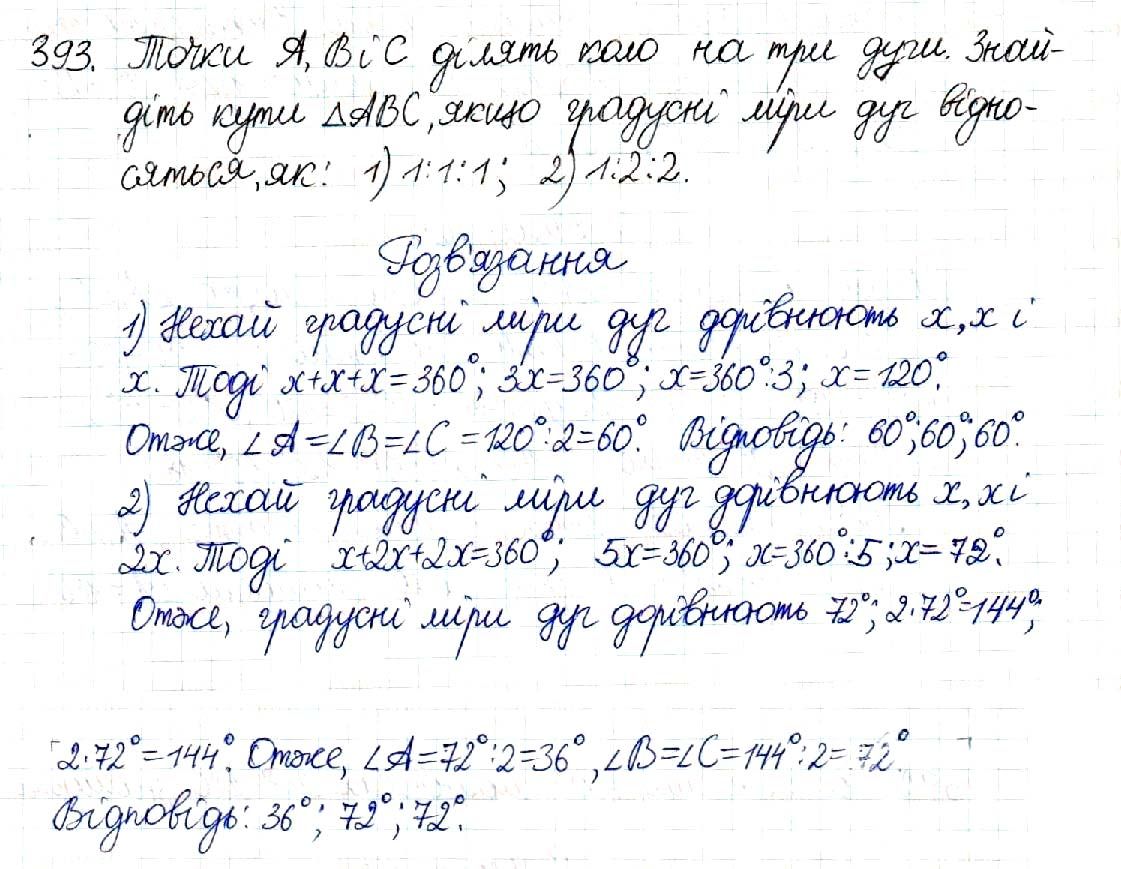 393. Точки A, B і C ділять коло на три дуги. Знай-
діть кути △ABC, якщо градусні міри дуг відно-
сяться, як: 1) 1:1:1; 2) 1:2:2.
Розв'язання
1) Нехай градусні міри дуг дорівнюють x, x і
x. Тоді x+x+x=360°; 3x=360°; x=360°:3; x=120°.
Отже, ∠A=∠B=∠C=120°:2=60°. Відповідь: 60°;60°;60°.
2) Нехай градусні міри дуг дорівнюють x, x і
2x. Тоді x+2x+2x=360°; 5x=360°; x=360°:5; x=72°.
Отже, градусні міри дуг дорівнюють 72°; 2·72°=144°;
2·72°=144°. Отже, ∠A=72°:2=36°, ∠B=∠C=144°:2=72°.
Відповідь: 36°; 72°; 72°.